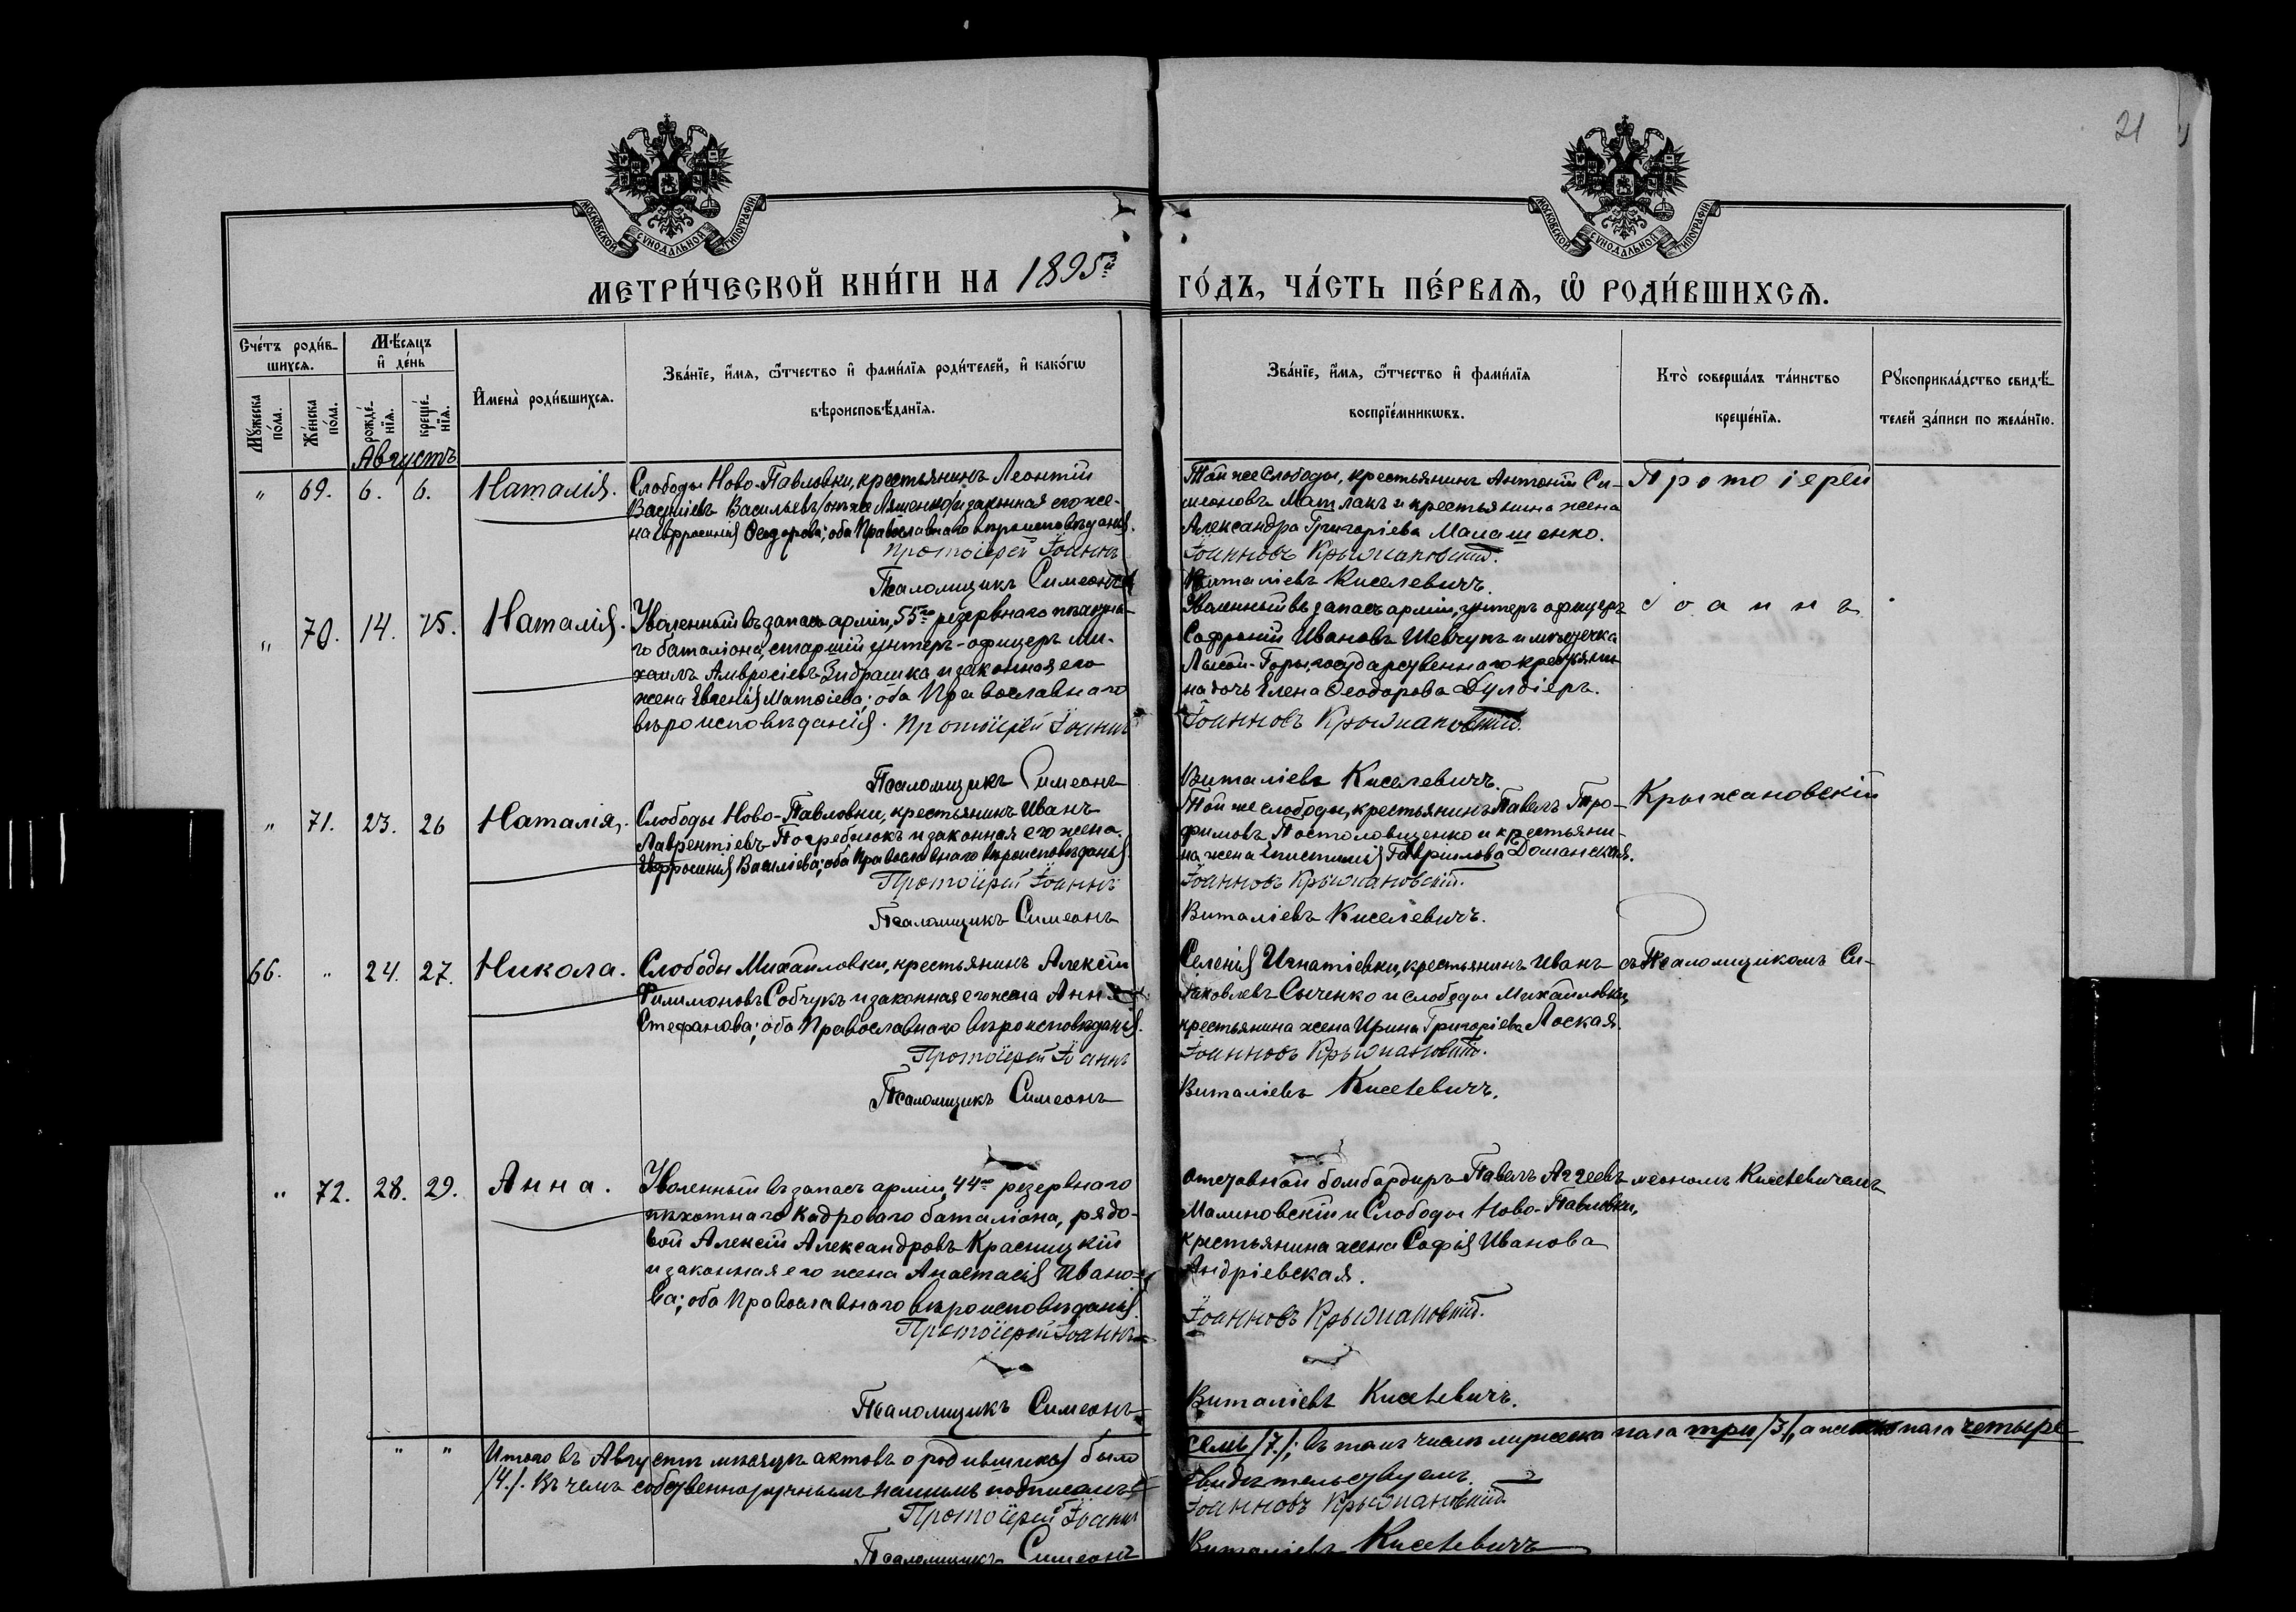 21
МОСКОВСКОЙ СѴНОДАЛЬНОЙ ТИПОГРАФІИ
МОСКОВСКОЙ СѴНОДАЛЬНОЙ ТИПОГРАФІИ
МЕТРИ́ЧЕСКОЙ КНИ́ГИ НА 1895й ГО́ДЪ, ЧА́СТЬ ПЕ́РВАѦ, Ѡ҆ РОДИ́ВШИХСѦ.
Сче́тъ роди́в-
шихсѧ.
Мѣ́сѧцъ
и҆ де́нь
Мꙋ́жеска по́ла.
Же́нска по́ла.
рожде́-
нїѧ.
креще́-
нїѧ.
И҆мена̀ роди́вшихсѧ.
Зва́нїе, и҆́мѧ, ѻ҆́тчество и҆ фами́лїѧ роди́телей, и҆ како́гѡ
вѣроисповѣ́данїѧ.
Зва́нїе, и҆́мѧ, ѻ҆́тчество и҆ фами́лїѧ
воспрїе́мникѡвъ.
Кто̀ соверша́лъ та́инство
креще́нїѧ.
Рꙋкоприкла́дство свидѣ́-
телей за́писи по жела́нїю.
Августъ
" 69. 6. 6. Наталія.
Слободы Ново-Павловки, крестьянинъ Леонтій
Василіевъ Васильевъ /онъ же Ляшенко/ и законная его же-
на Евфросинія Ѳеодорова; оба Православнаго вѣроисповѣданія.
Протоіерей Іоаннъ
Псаломщикъ Симеонъ
Той же Слободы, крестьянинъ Антоній Си-
меоновъ Матлакъ и крестьянина жена
Александра Григоріева Малашенко.
Іоанновъ Крыжановскій.
Виталіевъ Киселевичъ.
Протоіерей
" 70. 14. 15. Наталія.
Уволенный въ запасъ арміи, 55го резервнаго пѣхотна-
го баталіона, старшій унтеръ-офицеръ Ми-
хаилъ Амвросіевъ Зидрашка и законная его
жена Евгенія Матѳіева; оба Православнаго
вѣроисповѣданія. Протоіерей Іоаннъ
Псаломщикъ Симеонъ
Уволенный въ запасъ арміи, унтеръ офицеръ
Софроній Ивановъ Шевчукъ и мѣстечка
Лысой-Горы, государственнаго крестьяни-
на дочь Елена Ѳеодорова Дулдіеръ.
Іоанновъ Крыжановскій.
Виталіевъ Киселевичъ.
Іоаннъ
" 71. 23. 26 Наталія.
Слободы Ново-Павловки, крестьянинъ Иванъ
Лаврентіевъ Погребнюкъ и законная его жена
Евфросинія Василіева; оба Православнаго вѣроисповѣданія.
Протоіерей Іоаннъ
Псаломщикъ Симеонъ
Той же слободы, крестьянинъ Павелъ Тро-
фимовъ Постоловщенко и крестьяни-
на жена Епистимія Гавріилова Доманская.
Іоанновъ Крыжановскій.
Виталіевъ Киселевичъ.
Крыжановскій
66. " 24. 27. Никола.
Слободы Михайловки, крестьянинъ Алексій
Филимоновъ Собчукъ и законная его жена Анна
Стефанова; оба Православнаго вѣроисповѣданія.
Протоіерей Іоаннъ
Псаломщикъ Симеонъ
Селенія Игнатіевки, крестьянинъ Иванъ
Іаковлевъ Сыченко и слободы Михайловки,
крестьянина жена Ирина Григоріева Лоская.
Іоанновъ Крыжановскій.
Виталіевъ Киселевичъ.
съ Псаломщикомъ Си-
" 72. 28. 29. Анна.
Уволенный въ запасъ арміи, 44го резервнаго
пѣхотнаго Кадроваго баталіона, рядо-
вой Алексій Александровъ Красницкій
и законная его жена Анастасія Ивано-
ва; оба Православнаго вѣроисповѣданія.
Протоіерей Іоаннъ
Псаломщикъ Симеонъ
Отставной бомбардиръ Павелъ Аггеевъ
Малиновскій и Слободы Ново-Павловки,
крестьянина жена Софія Иванова
Андріевская.
Іоанновъ Крыжановскій.
Виталіевъ Киселевичъ.
меономъ Киселевичемъ
" " Итого въ Августѣ мѣсяцѣ актовъ о родившихся было семь /7./; въ томъ числѣ мужеска пола три /3/, а женска пола четыре
/4./. Въ чемъ собственноручнымъ нашимъ подписомъ свидѣтельствуемъ.
Протоіерей Іоаннъ Іоанновъ Крыжановскій.
Псаломщикъ Симеонъ Виталіевъ Киселевичъ